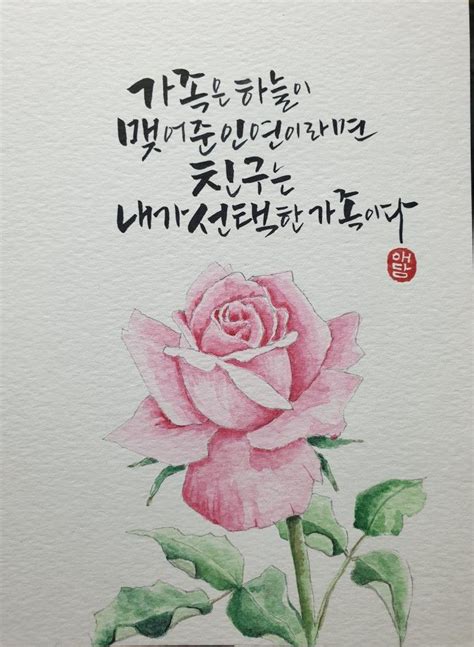 가족은 하늘이
맺어준 인연이라면
친구는
내가 선택한 가족이다
애담